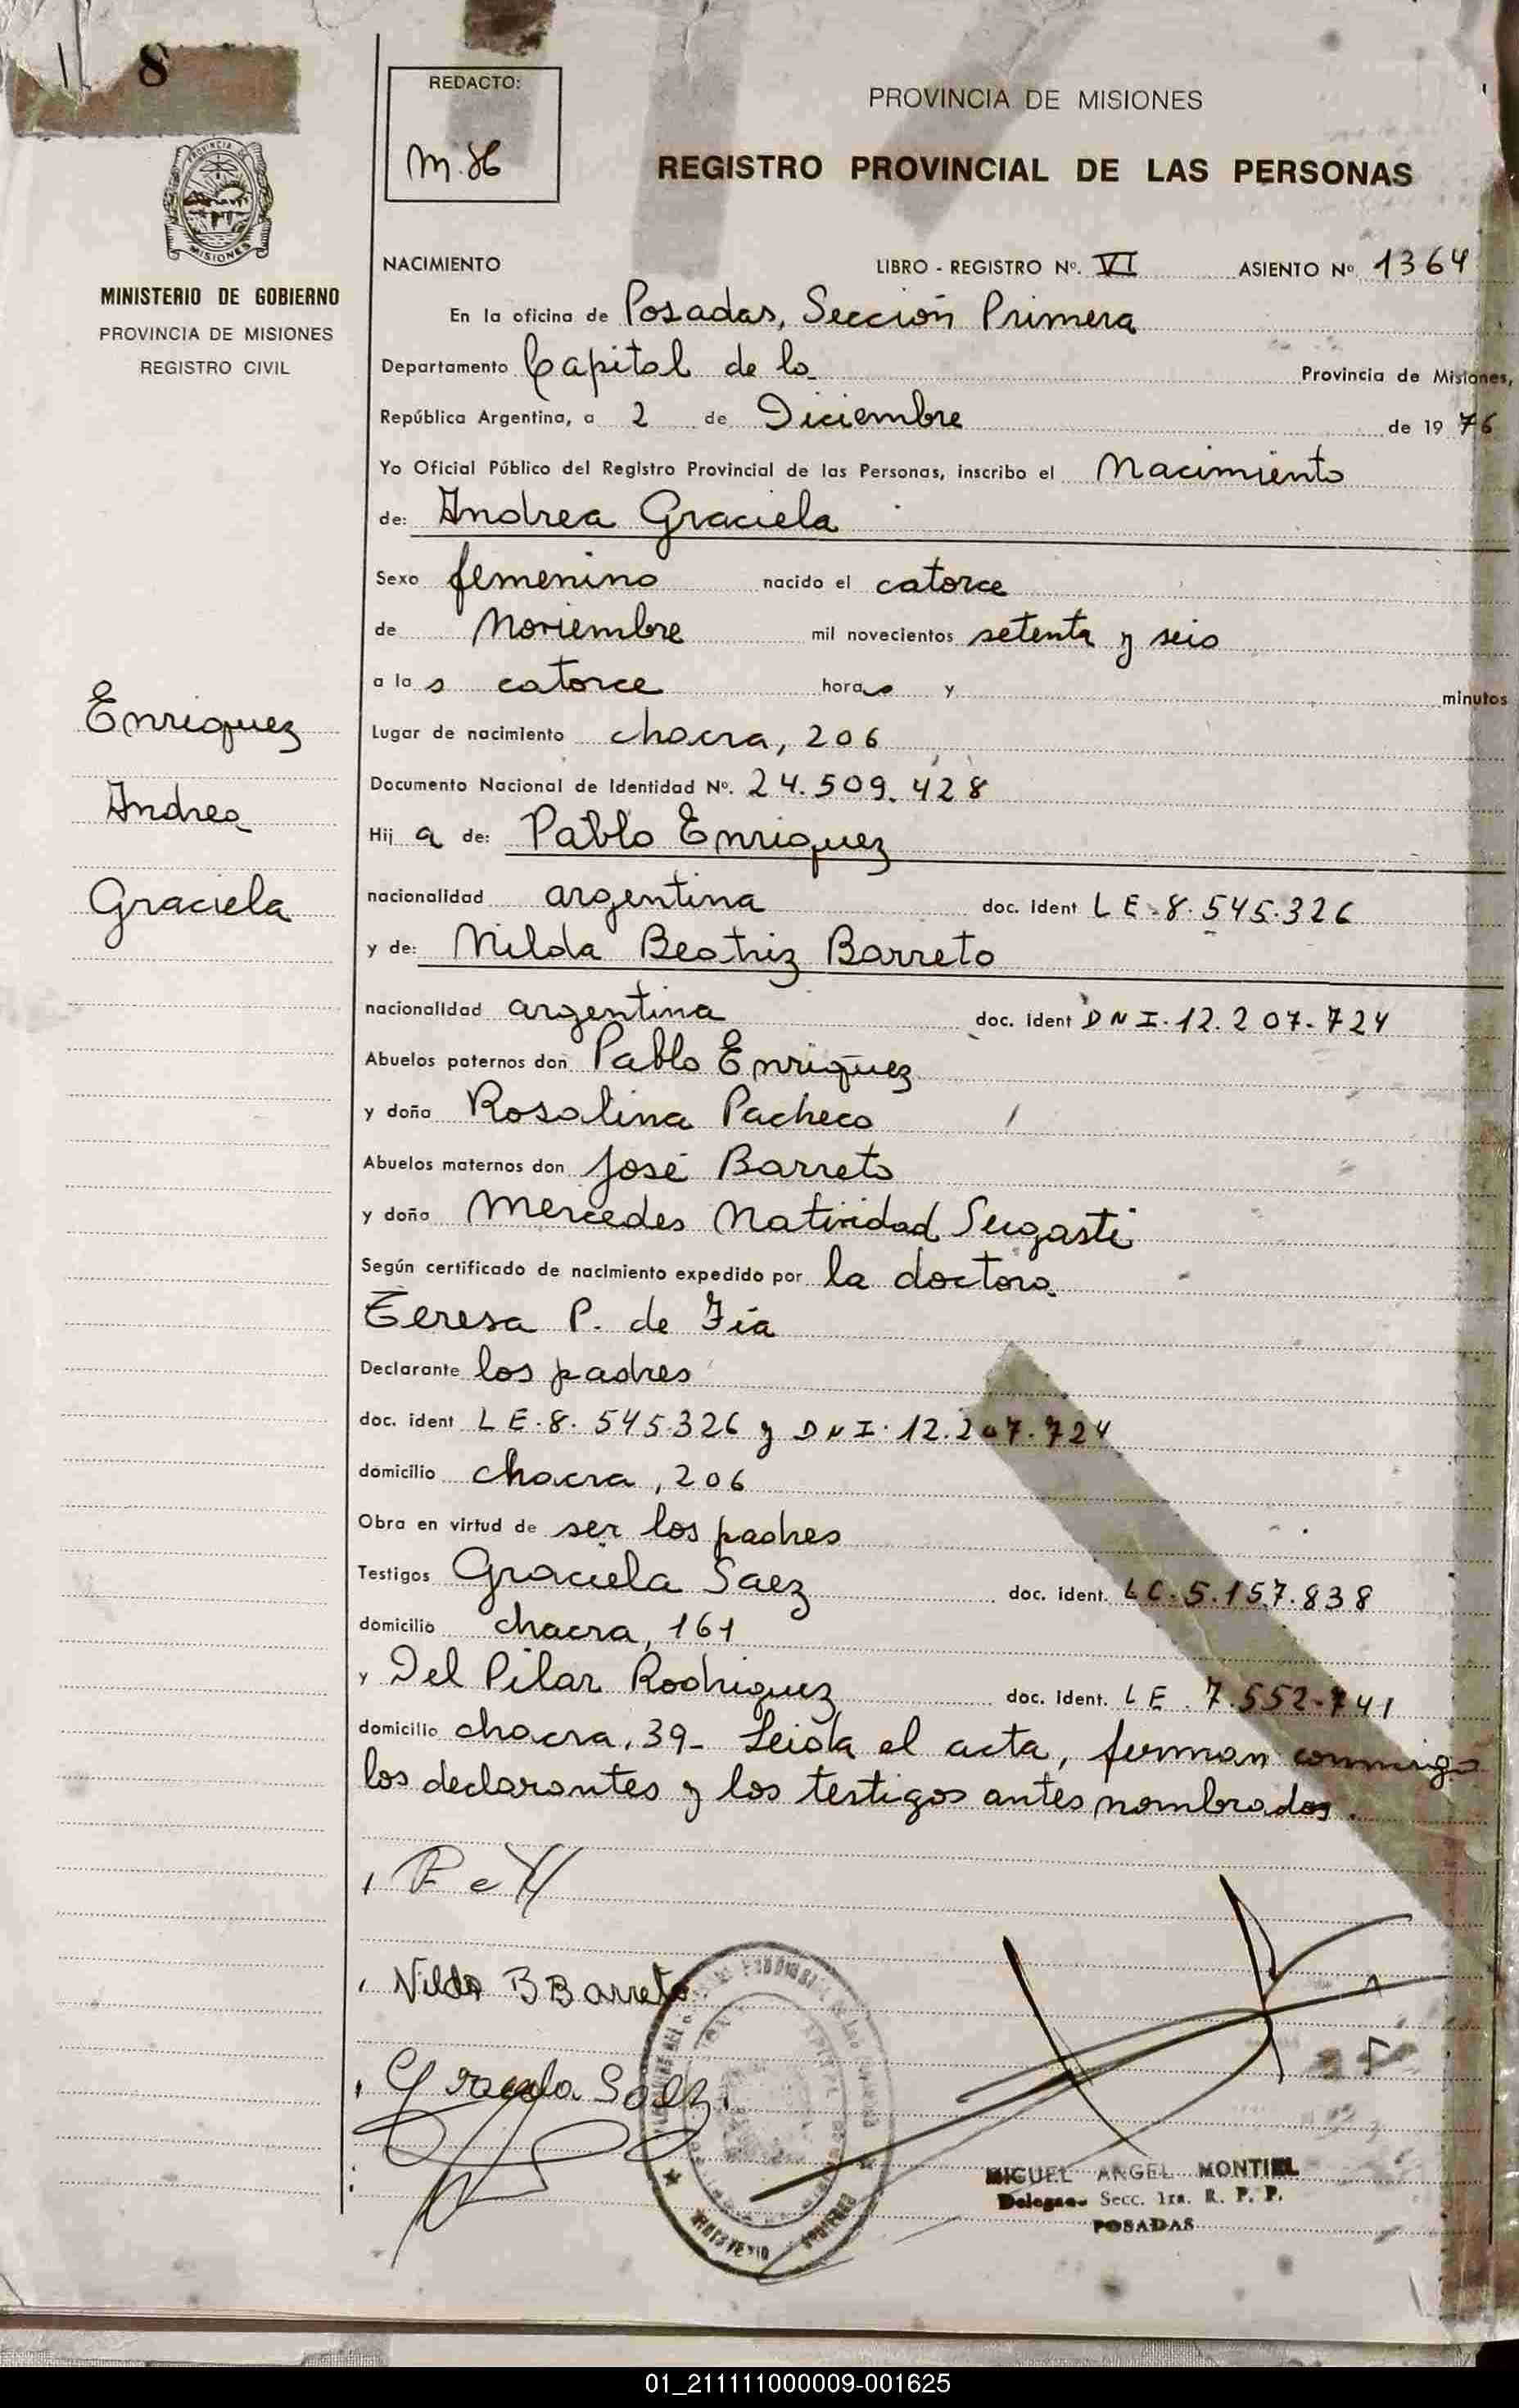 8
REDACTO:
PROVINCIA DE MISIONES
REGISTRO PROVINCIAL DE LAS PERSONAS
PROVINCIA DE
MISIONES
MINISTERIO DE GOBIERNO
PROVINCIA DE MISIONES
REGISTRO CIVIL
NACIMIENTO LIBRO - REGISTRO Nº. VI ASIENTO Nº 1364
En la oficina de Posadas, Sección Primera
Departamento Capital de la Provincia de Misiones,
República Argentina, a 2 de Diciembre de 1976
Yo Oficial Público del Registro Provincial de las Personas, inscribo el Nacimiento
de: Andrea Graciela
Sexo femenino nacido el catorce
de Noviembre mil novecientos setenta y seis
a las catorce horas y minutos
Lugar de nacimiento chacra, 206
Documento Nacional de Identidad Nº. 24.509.428
Hija de: Pablo Enriquez
nacionalidad argentina doc. ident LE.8.545.326
y de: Nilda Beatriz Barreto
nacionalidad argentina doc. ident DNI.12.207.724
Abuelos paternos don Pablo Enriquez
y doña Rosalina Pacheco
Abuelos maternos don José Barreto
y doña Mercedes Natividad Sugasti
Según certificado de nacimiento expedido por la doctora
Teresa P. de
Declarante los padres
doc. ident LE.8.545.326 y DNI.12.207.724
domicilio chacra, 206
Obra en virtud de ser los padres
Testigos Graciela Saez doc. ident. LC.5.157.838
domicilio chacra, 161
y Del Pilar Rodriguez doc. ident. LE.7.552.741
domicilio chacra, 39_ Leida el acta, firman conmigo
los declarantes y los testigos antes nombrados.
Enriquez
Andrea
Graciela
Nilda B Barreto
Graciela Saez
MIGUEL ANGEL MONTIEL
Delegado Secc. 1ra. R. P. P.
POSADAS
01_211111000009-001625